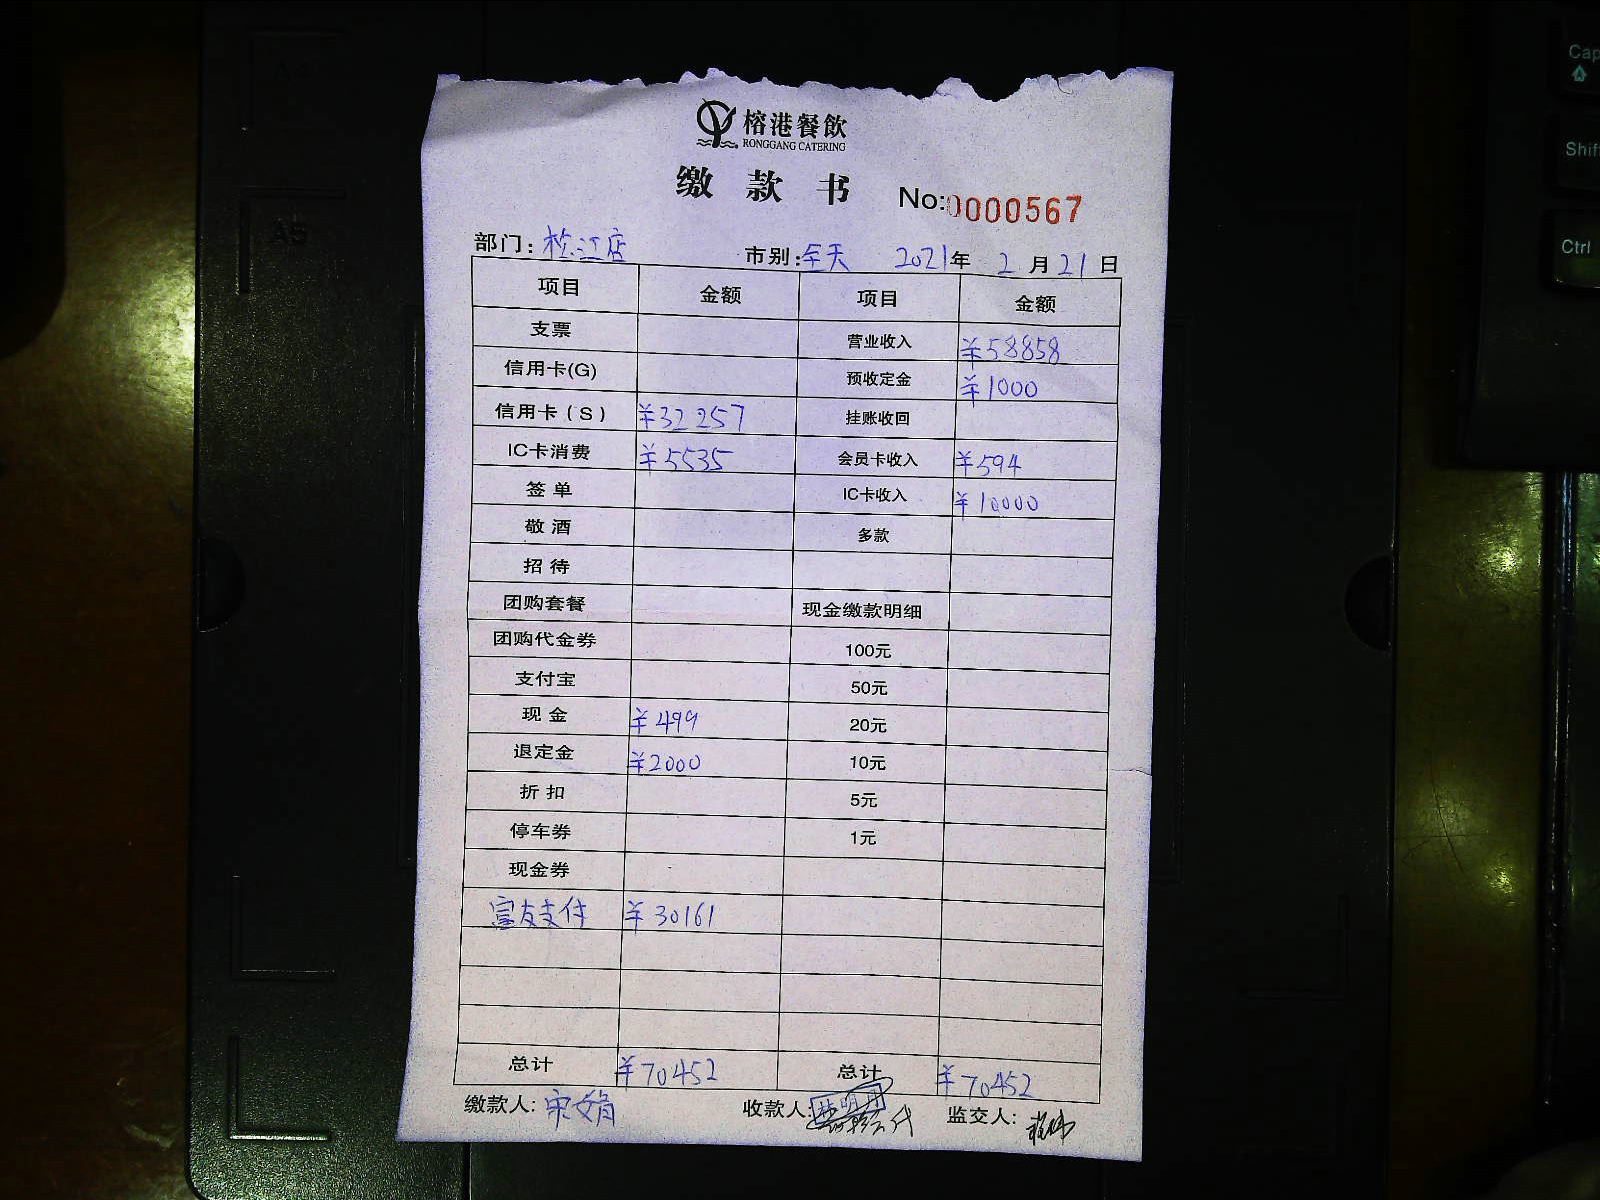 榕港餐飲
RONGGANG CATERING
缴 款 书 No:0000567
部门: 松江店 市别: 全天 2021年 2月21日
项目 金额 项目 金额
支票 营业收入 ¥58858
信用卡(G) 预收定金 ¥1000
信用卡(S) ¥32257 挂账收回
IC卡消费 ¥5535 会员卡收入 ¥594
签单 IC卡收入 ¥10000
敬酒 多款
招待
团购套餐 现金缴款明细
团购代金券 100元
支付宝 50元
现金 ¥499 20元
退定金 ¥2000 10元
折扣 5元
停车券 1元
现金券
富友支付 ¥30161
总计 ¥70452 总计 ¥70452
缴款人: 宋文娟 收款人: 监交人:
A4
A5
Cap
Shift
Ctrl